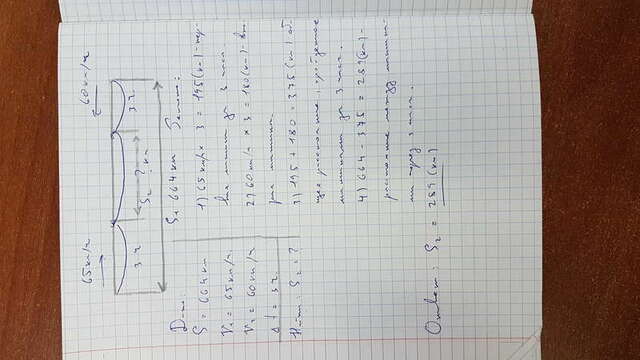 65 км/ч 60 км/ч
3 ч. S₂ ? км 3 ч.
S₁ 664 км
Дано: Решение:
S = 664 км
V₁ = 65 км/ч.
V₂ = 60 км/ч
Δ t = 3 ч.
Найти: S₂ = ?
1) 65 км/ч × 3 = 195 (км) - пер-
вая машина за 3 часа.
2) 60 км/ч × 3 = 180 (км) - вто-
рая машина.
3) 195 + 180 = 375 (км) об
щее расстояние, пройденное
машинами за 3 часа.
4) 664 - 375 = 289 (км) -
расстояние между машина-
ми через 3 часа.
Ответ: S₂ = 289 (км)